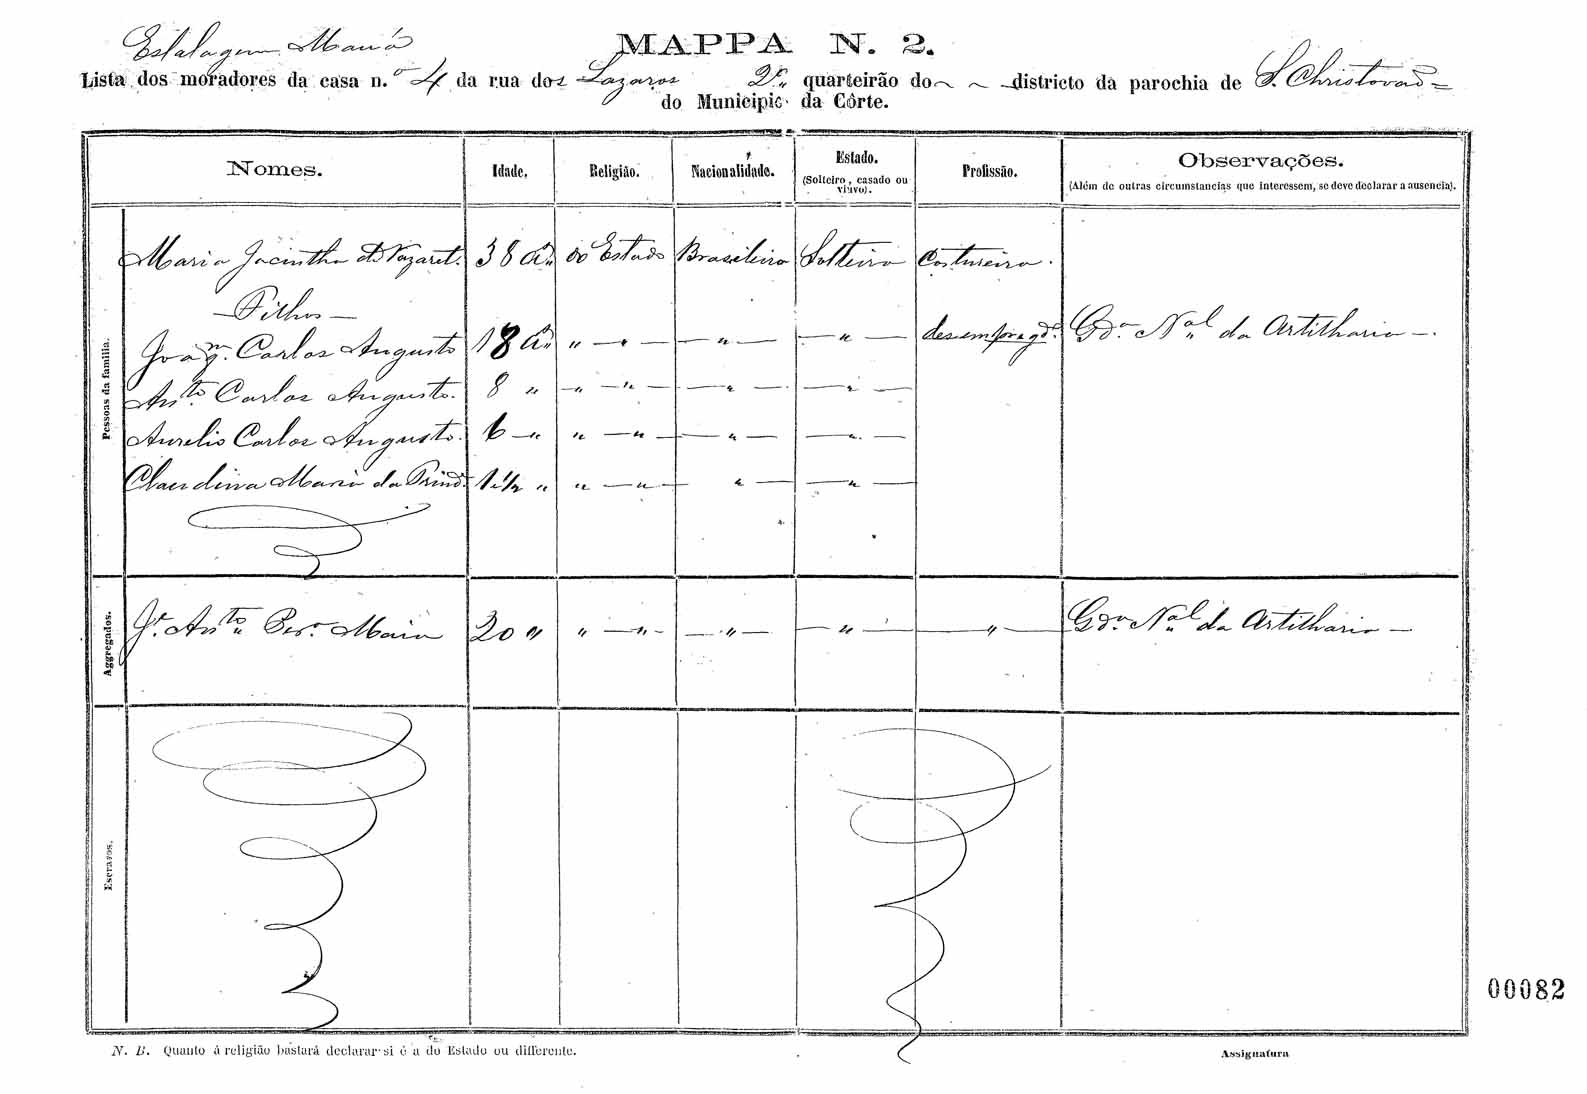 Estalagem Mauá
MAPPA N. 2.
Lista dos moradores da casa n.º 4 da rua dos Lazaros 2.º quarteirão do ~ ~ districto da parochia de S. Christovaõ =
do Municipio da Côrte.
Nomes. Idade. Religião. Nacionalidade. Estado. (Solteiro, casado ou viuvo). Profissão. Observações. (Além de outras circumstancias que interessem, se deve declarar a ausencia).
Pessoas da familia.
Maria Jacintha de Nazaret. 38 a.ˢ do Estado Brasileira Solteira Costureira.
— Filhos —
Joaq.ᵐ Carlos Augusto 18 a.ˢ " — " — — " — — " — desempregd.º Gd.ª N.ᵃˡ da Artilharia —.
Ant.ᵗᵒ Carlos Augusto. 8 " — " — " — — " — — " —
Aurelio Carlos Augusto. 6 — " " — " — — " — — " —
Claudina Maria da Trind.ᵉ 1 1/2 " " — " — " — — " —
Aggregados.
J.ᵉ Ant.ᵗᵒ Per.ª Maia 20 " " — " — — " — — " — — " — Gd.ª N.ᵃˡ da Artilharia —
Escravos.
00082
N. B. Quanto á religião bastará declarar si é a do Estado ou differente.
Assignatura